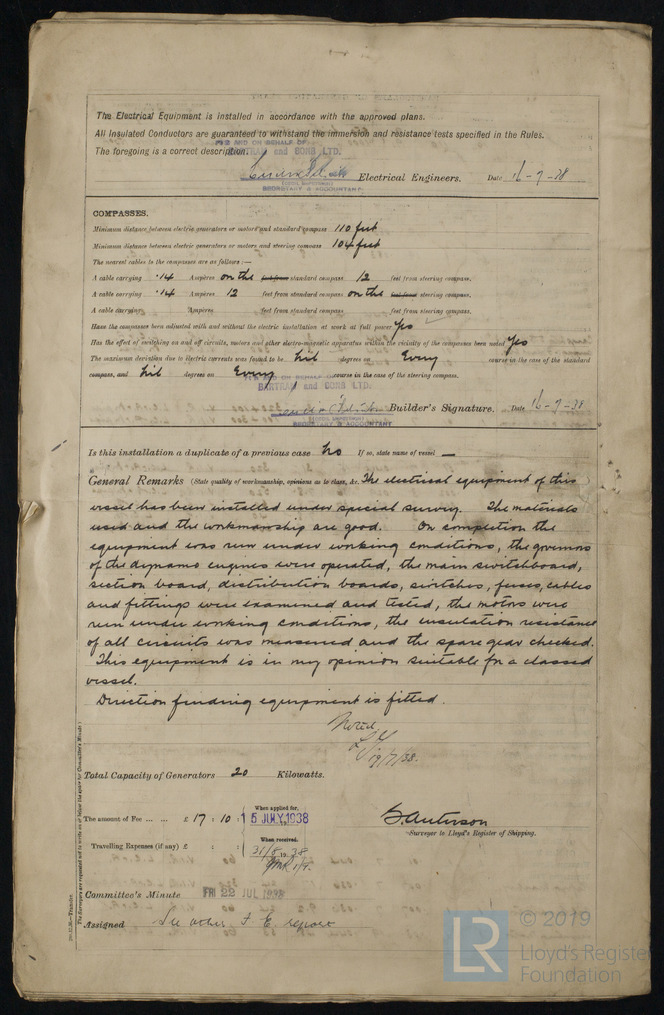 The Electrical Equipment is installed in accordance with the approved plans.
All Insulated Conductors are guaranteed to withstand the immersion and resistance tests specified in the Rules.
The foregoing is a correct description.
FOR AND ON BEHALF OF
BARTRAM and SONS LTD.
Electrical Engineers. Date 16-7-38
SECRETARY & ACCOUNTANT
COMPASSES.
Minimum distance between electric generators or motors and standard compass 110 feet
Minimum distance between electric generators or motors and steering compass 104 feet
The nearest cables to the compasses are as follows:—
A cable carrying .14 Ampères on the feet from standard compass 12 feet from steering compass.
A cable carrying .14 Ampères 12 feet from standard compass on the feet from steering compass.
A cable carrying Ampères feet from standard compass feet from steering compass.
Have the compasses been adjusted with and without the electric installation at work at full power Yes
Has the effect of switching on and off circuits, motors and other electro-magnetic apparatus within the vicinity of the compasses been noted Yes
The maximum deviation due to electric currents was found to be Nil degrees on Every course in the case of the standard
compass, and Nil degrees on Every course in the case of the steering compass.
FOR AND ON BEHALF OF
BARTRAM and SONS LTD.
Builder's Signature. Date 16-7-38
SECRETARY & ACCOUNTANT
Is this installation a duplicate of a previous case No If so, state name of vessel —
General Remarks (State quality of workmanship, opinions as to class, &c. The electrical equipment of this
vessel has been installed under special survey. The materials
used and the workmanship are good. On completion the
equipment was run under working conditions, the governors
of the dynamo engines were operated, the main switchboard,
section board, distribution boards, switches, fuses, cables
and fittings were examined and tested, the motors were
run under working conditions, the insulation resistance
of all circuits was measured and the spare gear checked.
This equipment is in my opinion suitable for a classed
vessel.
Direction finding equipment is fitted.
Noted
19/7/38.
Total Capacity of Generators 20 Kilowatts.
The amount of Fee ... ... £ 17 : 10 : When applied for, 15 JULY 1938
When received,
Travelling Expenses (if any) £ : : 31/8 1938
Surveyor to Lloyd's Register of Shipping.
Committee's Minute FRI 22 JUL 1938
Assigned See other F.E. report
The Surveyors are requested not to write on or below the space for Committee's Minute.
© 2019
LR Lloyd's Register
Foundation